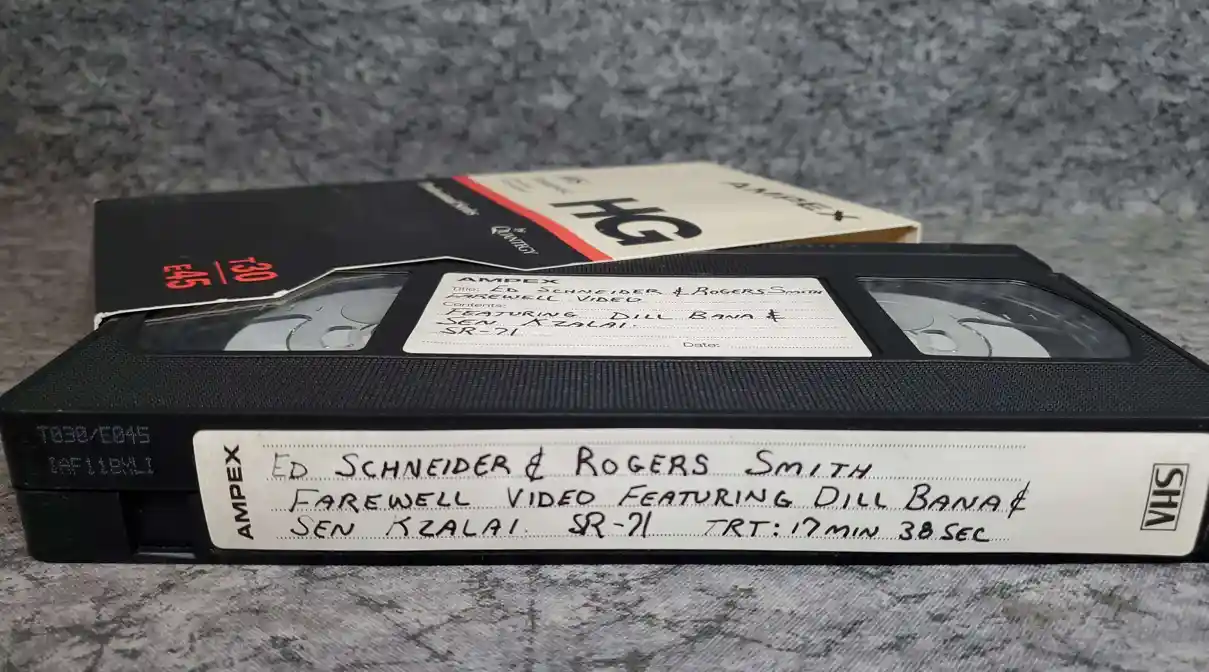 AMPEX
HG
QUANTEGY
T30
E45
AMPEX
Title: ED SCHNEIDER & ROGERS SMITH
FAREWELL VIDEO
Contents:
FEATURING DILL BANA &
SEN KZALAI.
SR-71
Date:
T030/E045
AMPEX
ED SCHNEIDER & ROGERS SMITH
FAREWELL VIDEO FEATURING DILL BANA &
SEN KZALAI. SR-71 TRT: 17 MIN 38 SEC
VHS